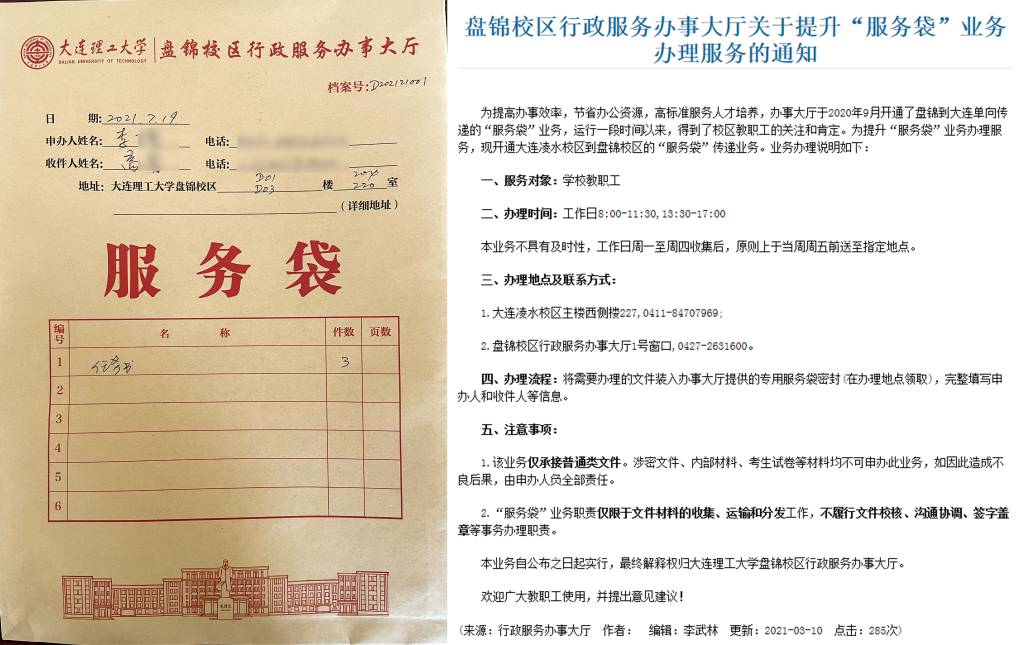 大连理工大学
DALIAN UNIVERSITY OF TECHNOLOGY
盘锦校区行政服务办事大厅
档案号:D202121001
日 期:2021.7.19
申办人姓名:李 电话:
收件人姓名:高 电话:
地址:大连理工大学盘锦校区 D01 楼 室
D03 220
(详细地址)
服务袋
编号 名 称 件数 页数
1 任务书 3
2
3
4
5
6
盘锦校区行政服务办事大厅关于提升“服务袋”业务
办理服务的通知
为提高办事效率，节省办公资源，高标准服务人才培养，办事大厅于2020年9月开通了盘锦到大连单向传
递的“服务袋”业务，运行一段时间以来，得到了校区教职工的关注和肯定。为提升“服务袋”业务办理服
务，现开通大连凌水校区到盘锦校区的“服务袋”传递业务。业务办理说明如下：
一、服务对象：学校教职工
二、办理时间：工作日8:00-11:30,13:30-17:00
本业务不具有及时性，工作日周一至周四收集后，原则上于当周周五前送至指定地点。
三、办理地点及联系方式：
1.大连凌水校区主楼西侧楼227,0411-84707969;
2.盘锦校区行政服务办事大厅1号窗口,0427-2631600。
四、办理流程：将需要办理的文件装入办事大厅提供的专用服务袋密封(在办理地点领取)，完整填写申
办人和收件人等信息。
五、注意事项：
1.该业务仅承接普通类文件。涉密文件、内部材料、考生试卷等材料均不可申办此业务，如因此造成不
良后果，由申办人负全部责任。
2.“服务袋”业务职责仅限于文件材料的收集、运输和分发工作，不履行文件校核、沟通协调、签字盖
章等事务办理职责。
本业务自公布之日起实行，最终解释权归大连理工大学盘锦校区行政服务办事大厅。
欢迎广大教职工使用，并提出意见建议！
(来源：行政服务办事大厅 作者： 编辑：李武林 更新：2021-03-10 点击：285次)